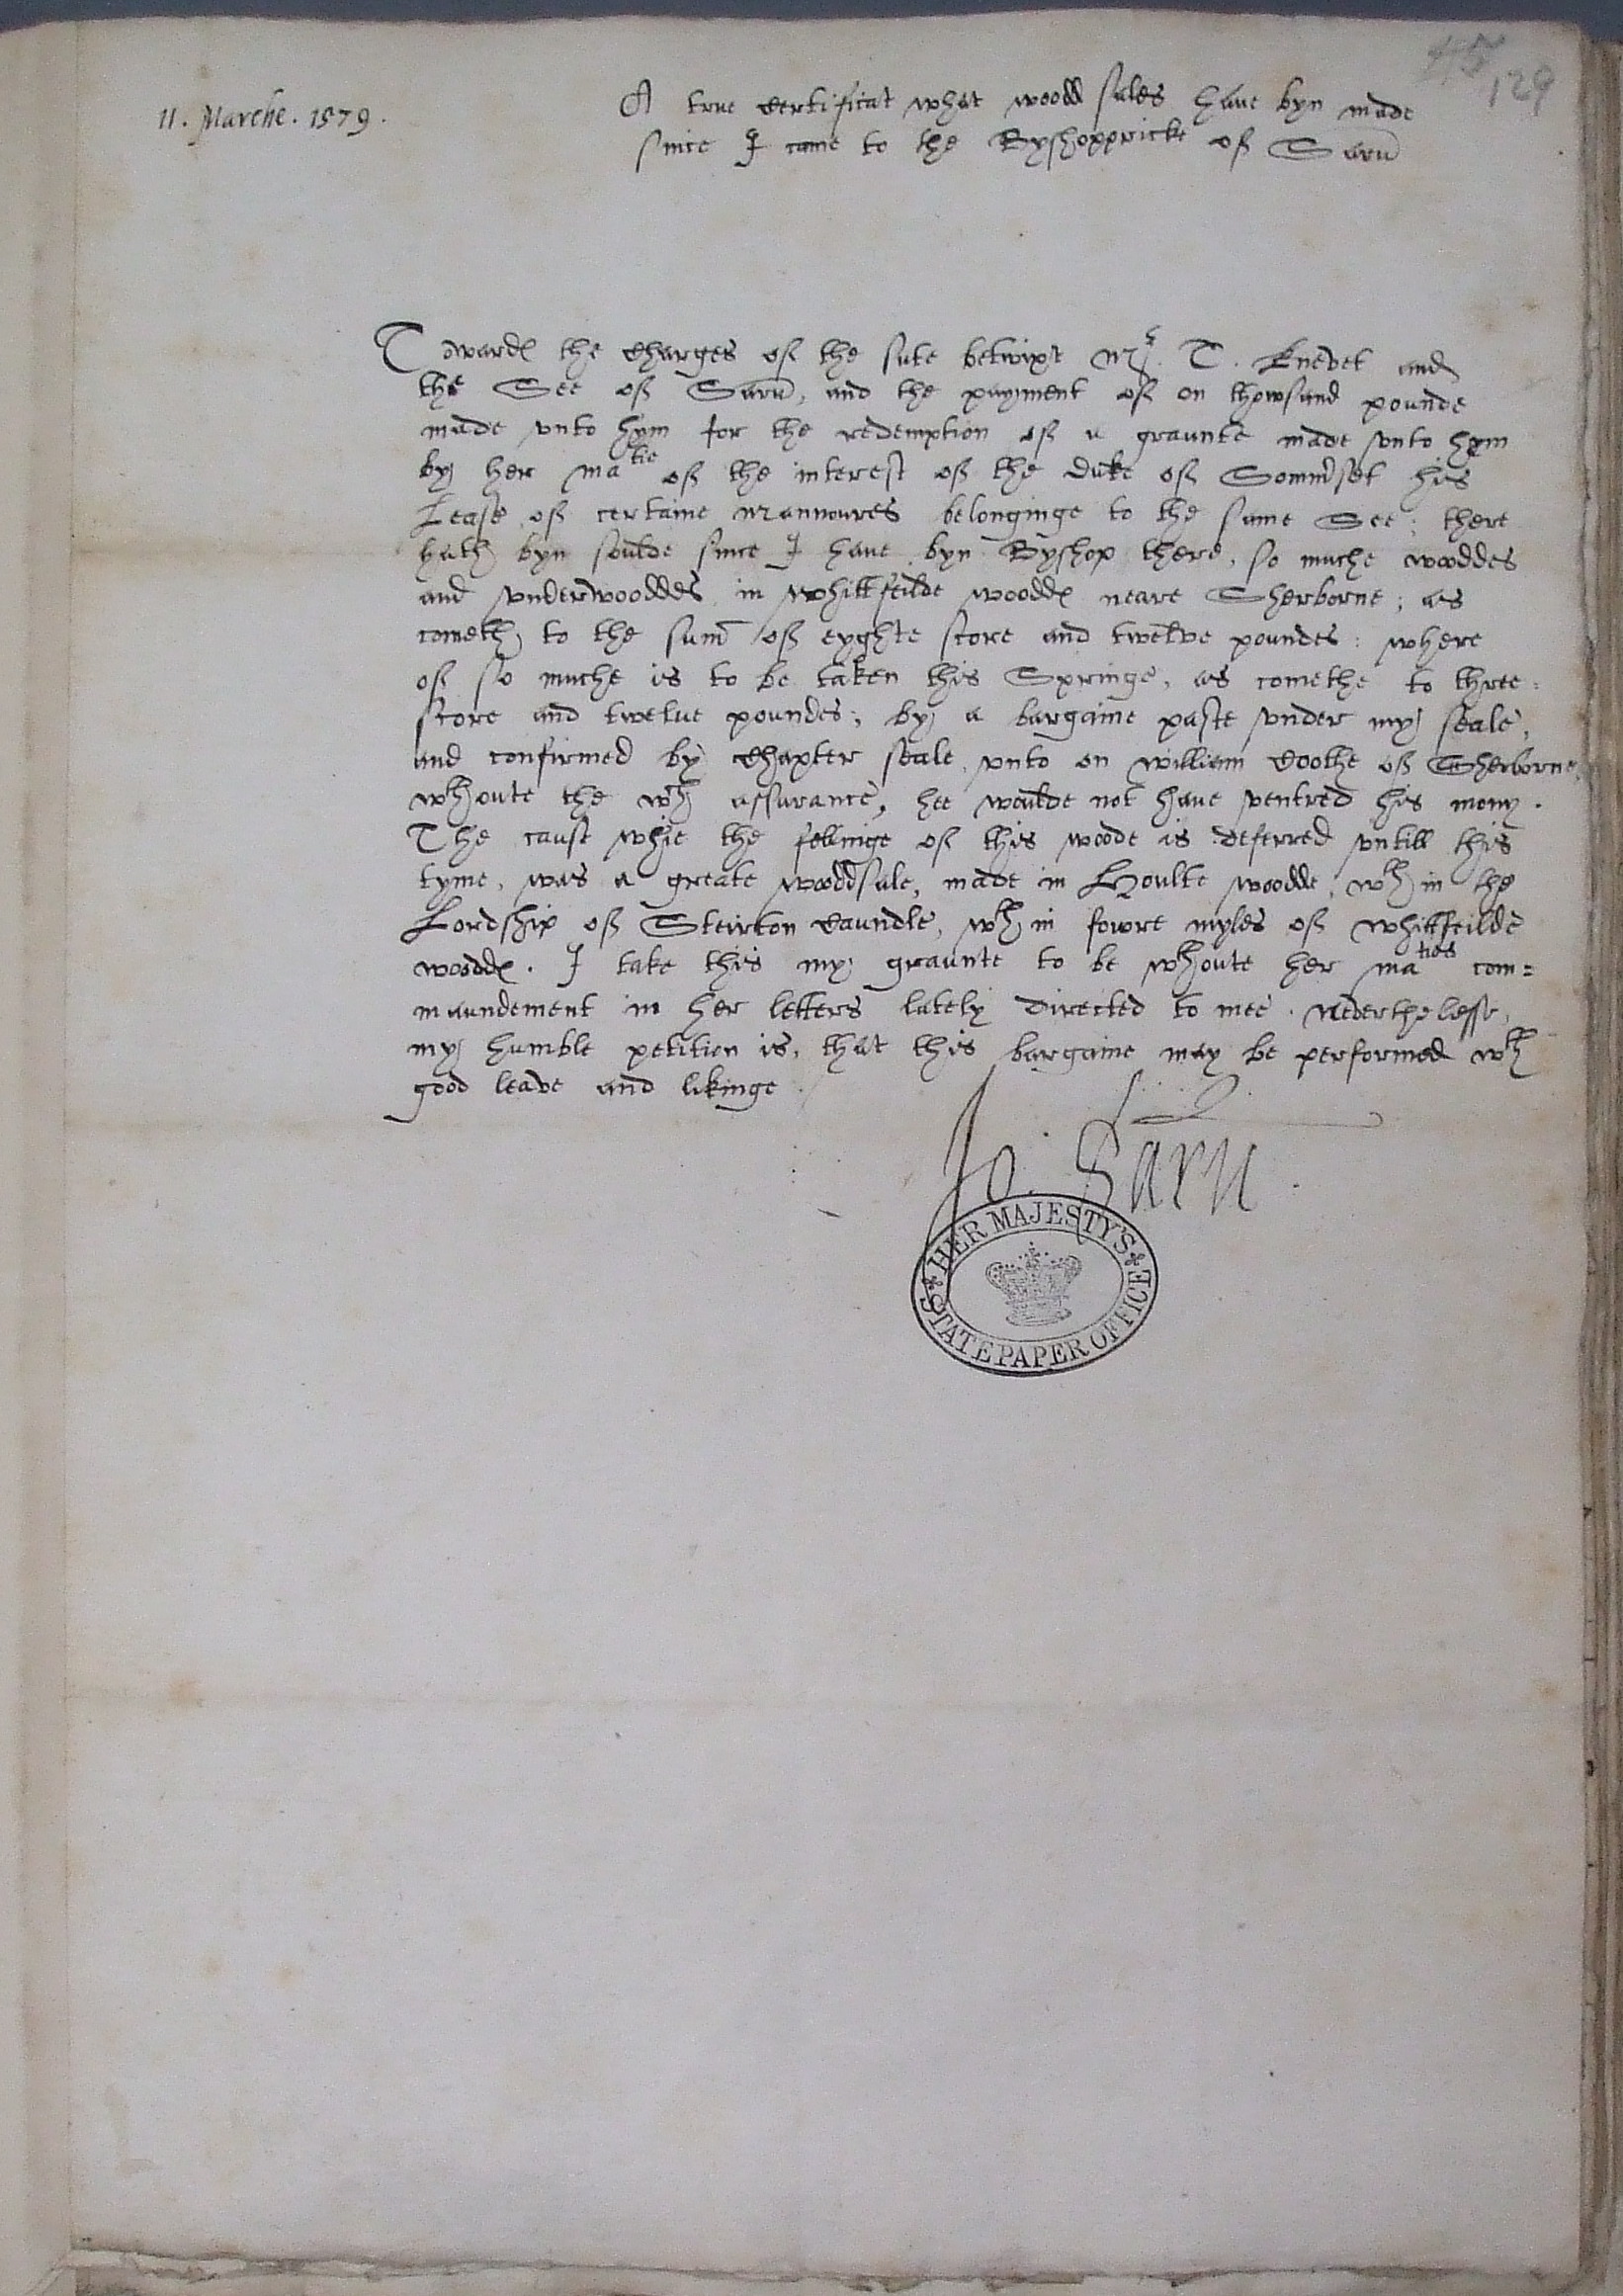 129
11. Marche. 1579.
A true certificat what woodd sales have byn made
since I came to the Byshoppricke of Sarū
Towardes the charges of the sute betwixt Mr. T. Knevet and
the See of Sarū, and the payment of on thowsand pounde
made unto hym for the redemption of a graunte made unto hym
by her matie of the interest of the Duke of Sommerset his
Lease of certaine Mannoures belonginge to the same See; there
hath byn soulde since I have byn Byshop there, so muche wooddes
and underwooddes in Whittfeilde wooddes neare Sherborne; as
cometh to the sum̄ of eyghte score and twelve poundes: where
of so muche is to be taken this Springe, as comethe to three=
score and twelve poundes; by a bargaine paste under my seale,
and confirmed by Chapter seale, unto on William Coothe of Sherborne,
wthoute the wch assurance, hee woulde not have ventred his mony.
The cause whie the fellinge of this woode is deferred untill this
tyme, was a greate woddsale, made in Houlte woodde, wthin the
Lordship of Steirton Caundle, wthin fowre myles of Whittfeilde
wooddes. I take this my graunte to be wthoute her maties com=
maundement in her letters lately directed to mee. Neverthelesse,
my humble petition is, that this bargaine may be performed wth
good leave and likinge
Jo. Sarū.
HER MAJESTY'S
STATE PAPER OFFICE